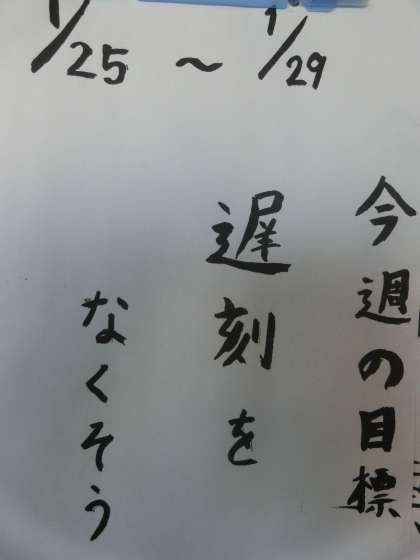 1/25 ～ 1/29
今週の目標
遅刻を
なくそう